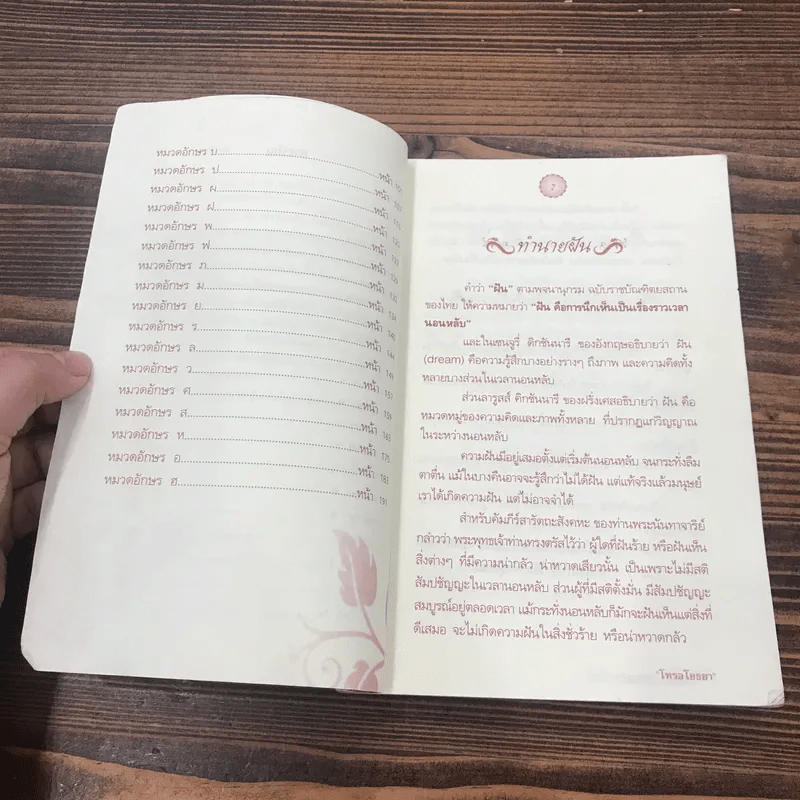 หมวดอักษร บ......หน้า
หมวดอักษร ป......หน้า
หมวดอักษร ผ......หน้า
หมวดอักษร ฝ......หน้า
หมวดอักษร พ......หน้า
หมวดอักษร ฟ......หน้า
หมวดอักษร ภ......หน้า
หมวดอักษร ม......หน้า
หมวดอักษร ย......หน้า
หมวดอักษร ร......หน้า 140
หมวดอักษร ล......หน้า 144
หมวดอักษร ว......หน้า 149
หมวดอักษร ศ......หน้า 157
หมวดอักษร ส......หน้า 159
หมวดอักษร ห......หน้า 165
หมวดอักษร อ......หน้า 175
หมวดอักษร ฮ......หน้า 191
7
ทำนายฝัน
คำว่า "ฝัน" ตามพจนานุกรม ฉบับราชบัณฑิตยสถาน
ของไทย ให้ความหมายว่า "ฝัน คือการนึกเห็นเป็นเรื่องราวเวลา
นอนหลับ"
และในเซนจูรี่ ดิกชันนารี ของอังกฤษอธิบายว่า ฝัน
(dream) คือความรู้สึกบางอย่างรางๆ ถึงภาพ และความคิดทั้ง
หลายบางส่วนในเวลานอนหลับ
ส่วนลารูสส์ ดิกชันนารี ของฝรั่งเศสอธิบายว่า ฝัน คือ
หมวดหมู่ของความคิดและภาพทั้งหลาย ที่ปรากฏแก่วิญญาณ
ในระหว่างนอนหลับ
ความฝันมีอยู่เสมอตั้งแต่เริ่มต้นนอนหลับ จนกระทั่งลืม
ตาตื่น แม้ในบางคืนอาจจะรู้สึกว่าไม่ได้ฝัน แต่แท้จริงแล้วมนุษย์
เราได้เกิดความฝัน แต่ไม่อาจจำได้
สำหรับคัมภีร์สารัตถะสังคหะ ของท่านพระนันทาจาริย์
กล่าวว่า พระพุทธเจ้าท่านทรงตรัสไว้ว่า ผู้ใดที่ฝันร้าย หรือฝันเห็น
สิ่งต่างๆ ที่มีความน่ากลัว น่าหวาดเสียวนั้น เป็นเพราะไม่มีสติ
สัมปชัญญะในเวลานอนหลับ ส่วนผู้ที่มีสติตั้งมั่น มีสัมปชัญญะ
สมบูรณ์อยู่ตลอดเวลา แม้กระทั่งนอนหลับก็มักจะฝันเห็นแต่สิ่งที่
ดีเสมอ จะไม่เกิดความฝันในสิ่งชั่วร้าย หรือน่าหวาดกลัว
"โหรอโยธยา"